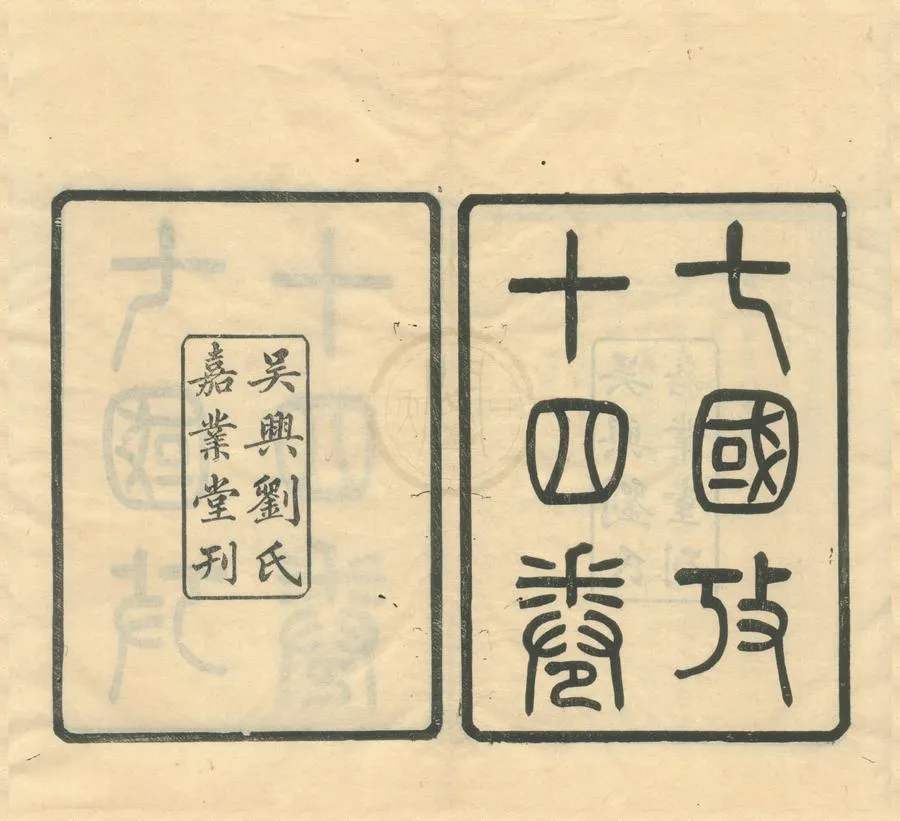 七國攷
十四卷
吴興劉氏
嘉業堂刊